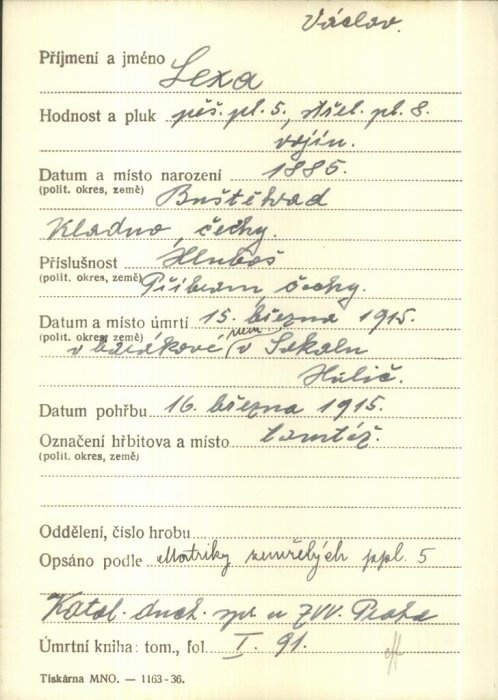 Václav.
Příjmení a jméno Lexa
Hodnost a pluk pěš. pl. 5., střel. pl. 8.
vojín.
Datum a místo narození 1885.
(polit. okres, země) Buštěhrad
Kladno, čechy.
Příslušnost Hluboš
(polit. okres, země) Příbram, čechy.
Datum a místo úmrtí 15. března 1915.
(polit. okres, země) nem.
v barákové v Sokalu
Halič.
Datum pohřbu 16. března 1915.
Označení hřbitova a místo tamtéž.
(polit. okres, země)
Oddělení, číslo hrobu
Opsáno podle Matriky zemřelých ppl. 5
Katol. duch. spr. u ZVV. Praha
Úmrtní kniha: tom., fol. I. 91.
Tiskárna MNO. — 1163-36.